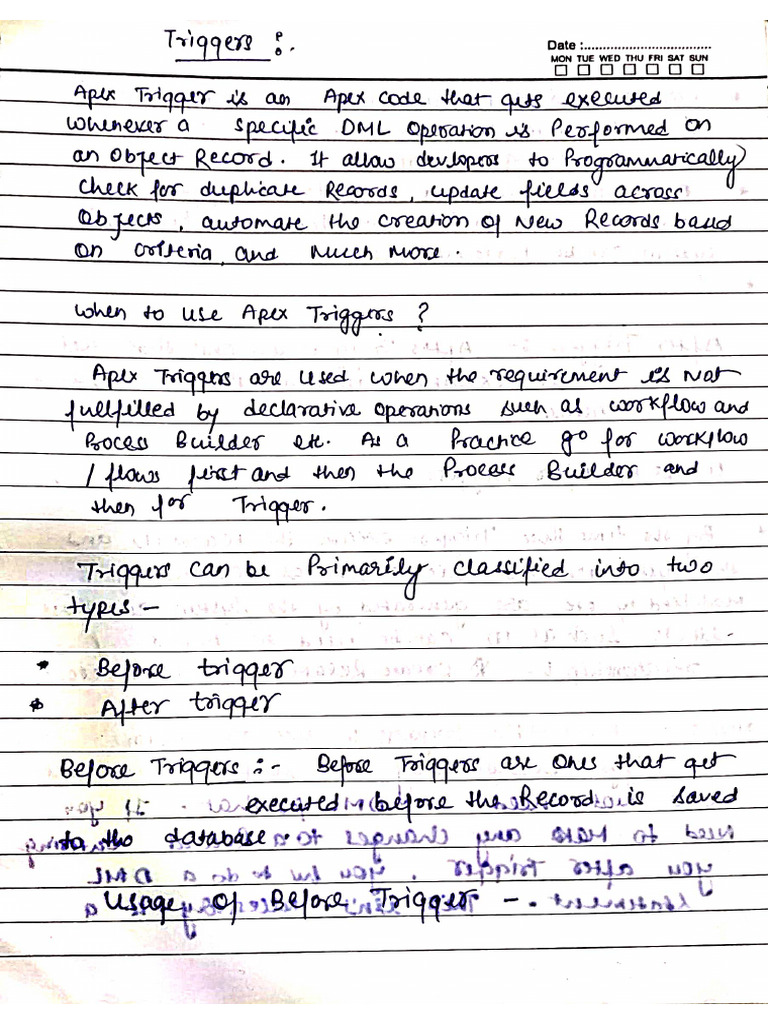 Triggers :.
Date :
MON TUE WED THU FRI SAT SUN
Apex Trigger is an Apex code that gets executed
whenever a specific DML operation is Performed on
an object Record. It allow developers to Programmatically
check for duplicate Records, update fields across
objects, automate the creation of New Records based
on criteria, and much more.
when to use Apex Triggers ?
Apex Triggers are used when the requirement is Not
fulfilled by declarative operations such as workflow and
Process Builder etc. As a Practice go for workflow
/ flows first and then the Process Builder and
then for Trigger.
Triggers can be Primarily classified into two
types:-
* Before trigger
* After trigger
Before Triggers :- Before Triggers are ones that get
executed before the Record is saved
to the database.
Usage Of Before Trigger -.